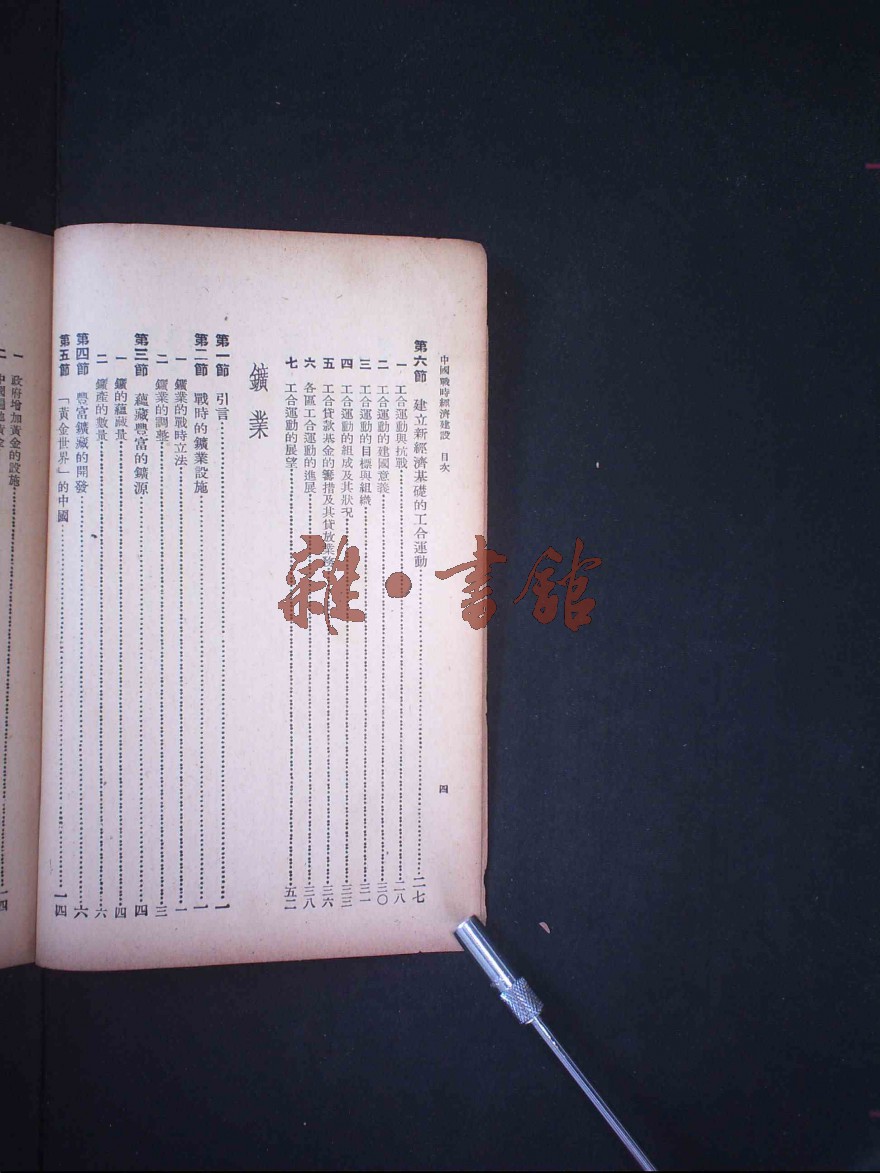 中國戰時經濟建設 目次
四
第六節 建立新經濟基礎的工合運動……二七
一 工合運動與抗戰……二八
二 工合運動的建國意義……三〇
三 工合運動的目標與組織……三一
四 工合運動的組成及其狀况……三三
五 工合貸款基金的籌措及其貸放業務……三六
六 各區工合運動的進展……三八
七 工合運動的展望……五二
鑛業
第一節 引言……一
第二節 戰時的鑛業設施……一
一 鑛業的戰時立法……一
二 鑛業的調整……三
第三節 蘊藏豐富的鑛源……四
一 鑛的蘊藏量……四
二 鑛產的數量……六
第四節 豐富鑛藏的開發……六
第五節 「黃金世界」的中國……一四
一 政府增加黃金的設施……一四
二 中國
雜·書館